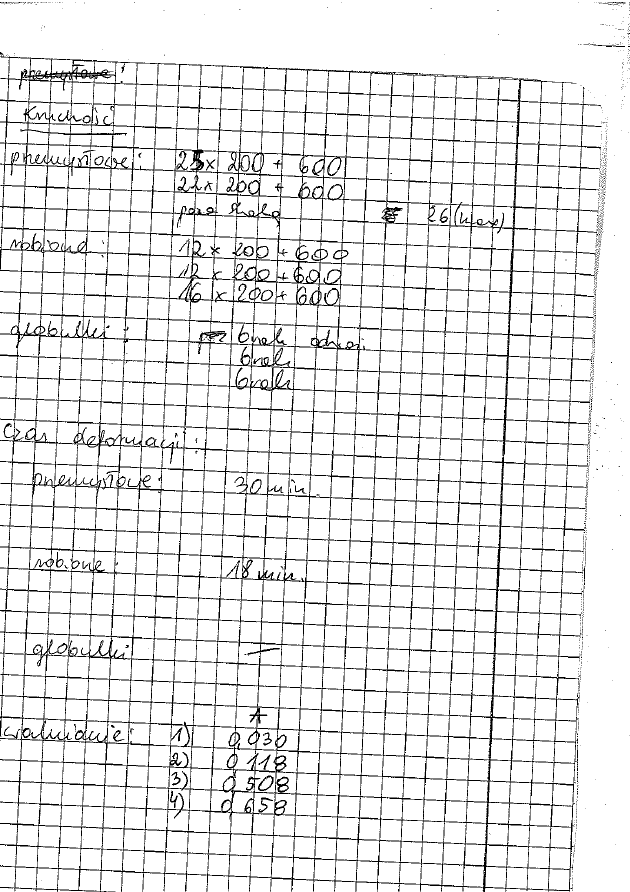 przemysłowe:
Kruchość
przemysłowe: 25 x 200 + 600
22 x 200 + 600
poza skalą 26 (max)
robione: 12 x 200 + 600
12 x 200 + 600
16 x 200 + 600
globulki: brak
brak
brak
Czas deformacji:
przemysłowe: 30 min.
robione: 18 min.
globulki —
A
uwalnianie: 1) 0,030
2) 0,118
3) 0,508
4) 0,658